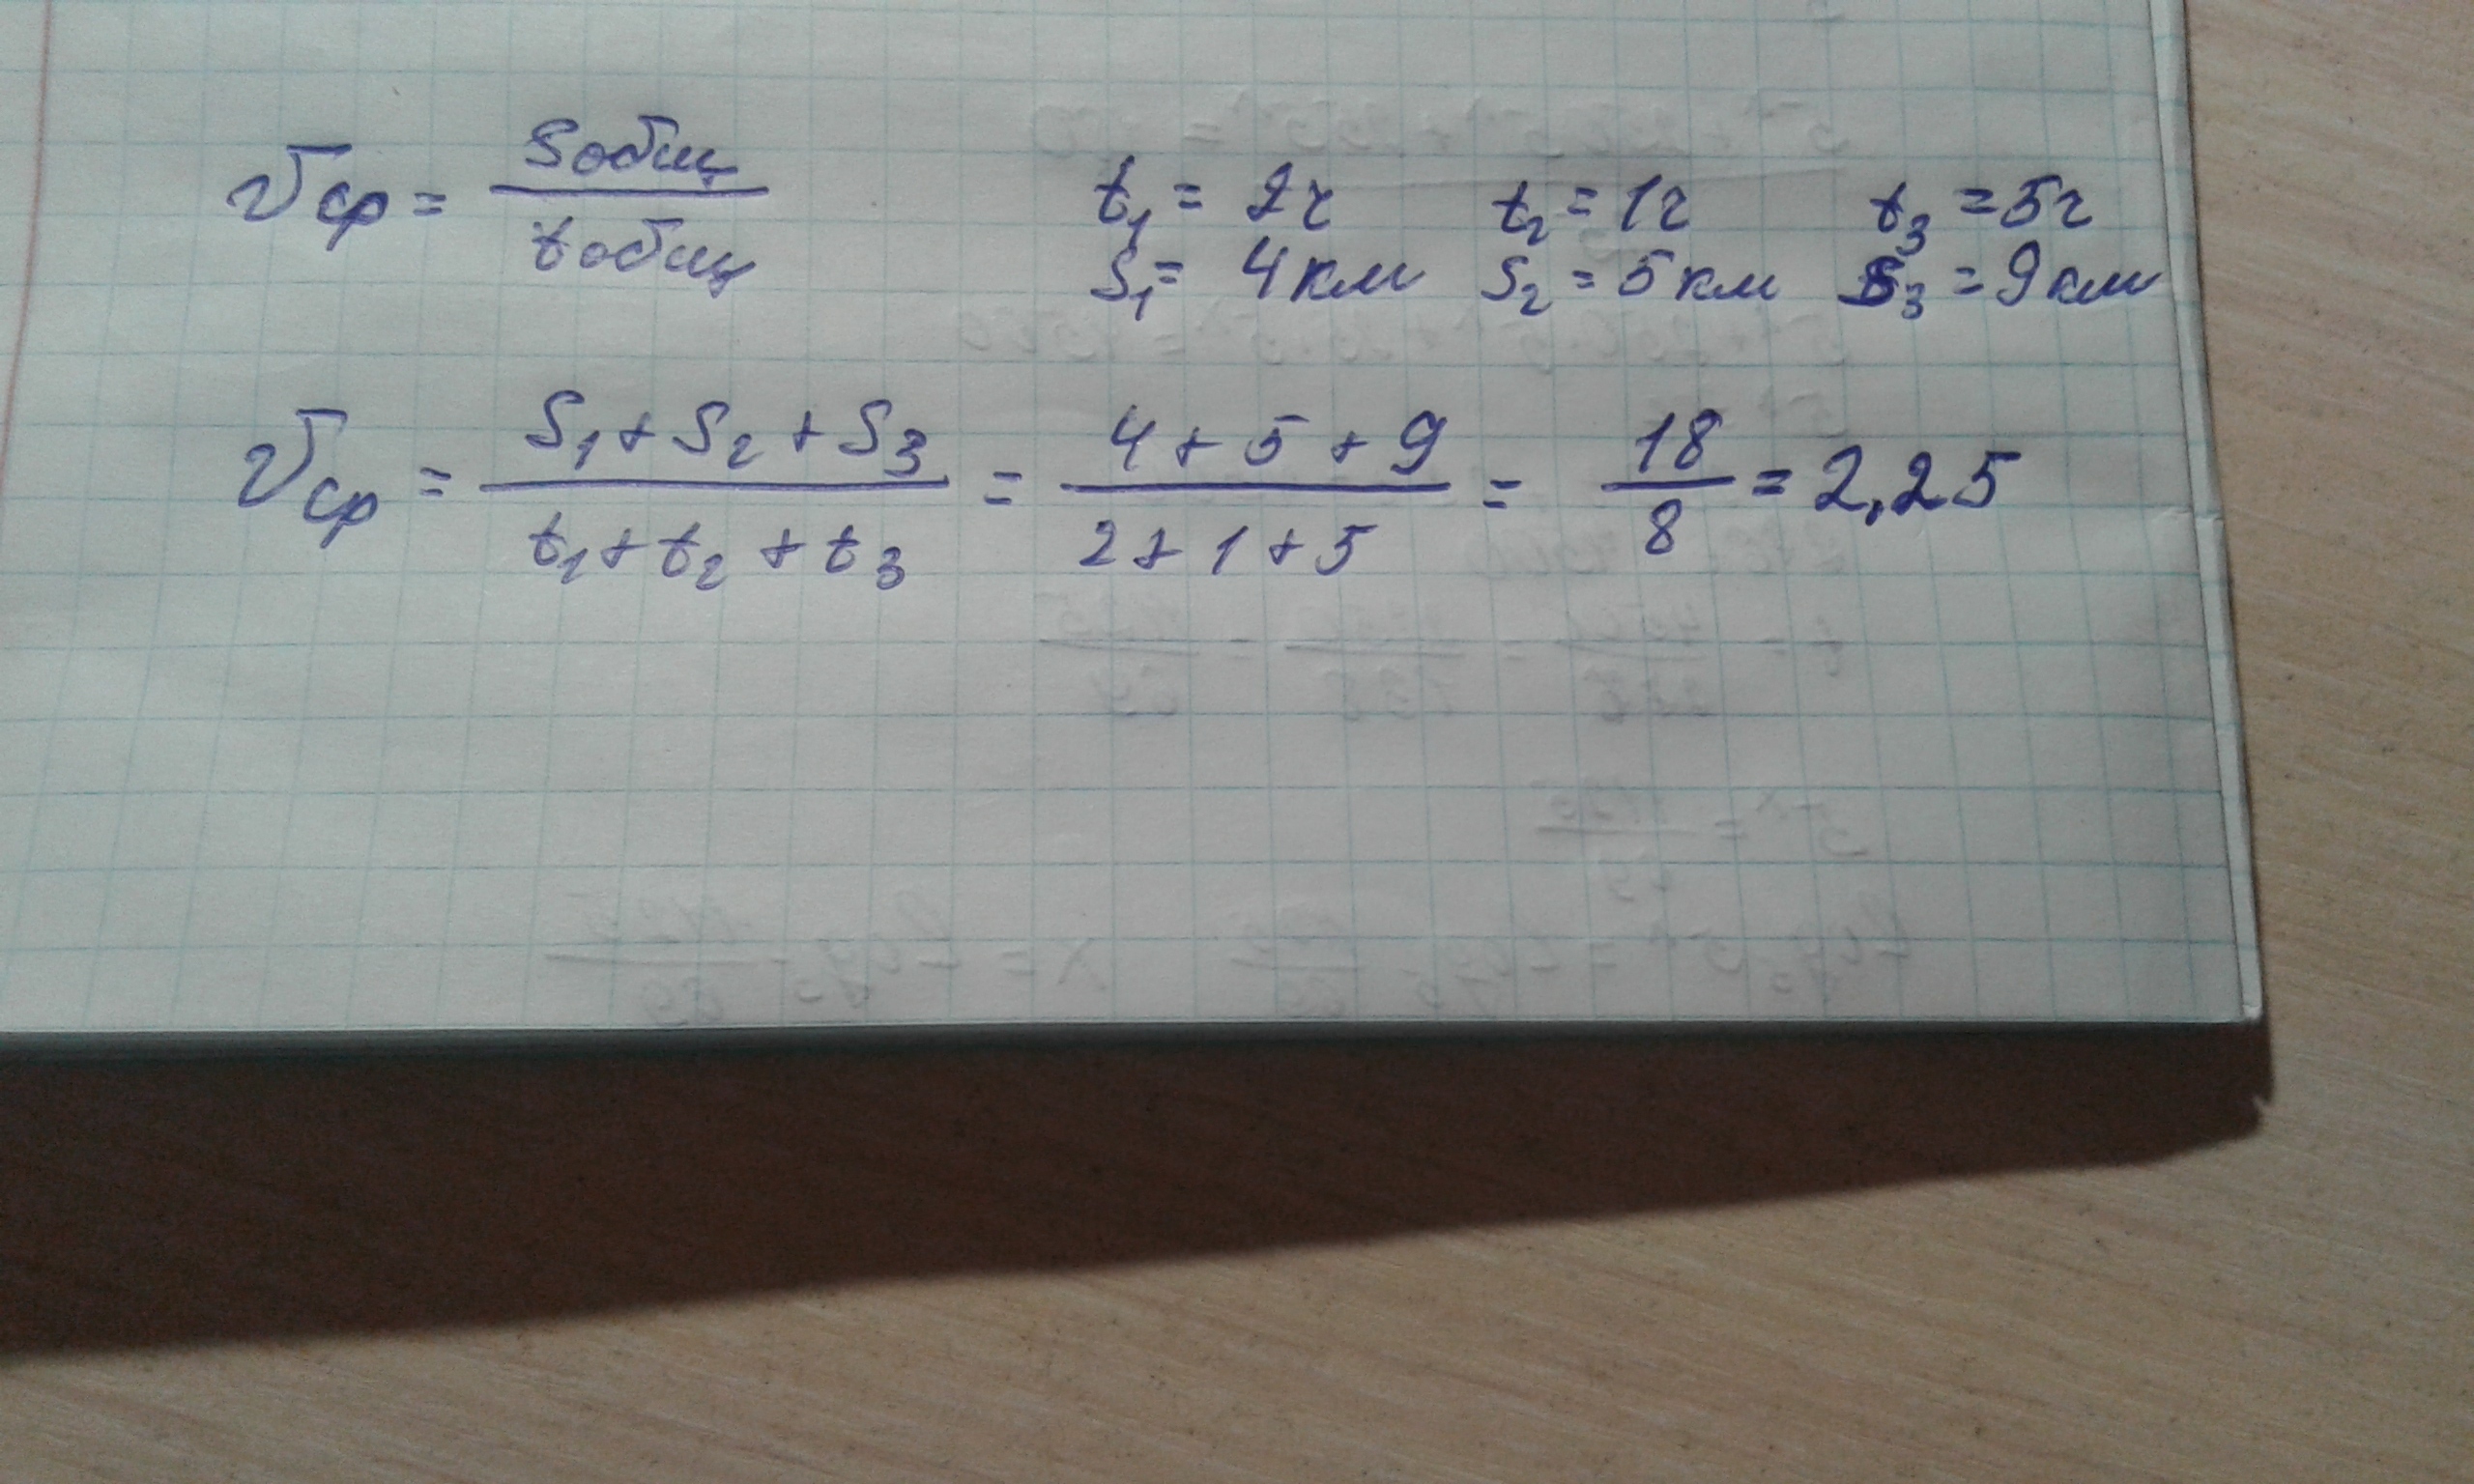 vср = Sобщ / tобщ
t₁ = 2ч t₂ = 1ч t₃ = 5ч
S₁ = 4 км S₂ = 5 км S₃ = 9 км
vср = (S₁ + S₂ + S₃) / (t₁ + t₂ + t₃) = (4 + 5 + 9) / (2 + 1 + 5) = 18 / 8 = 2,25